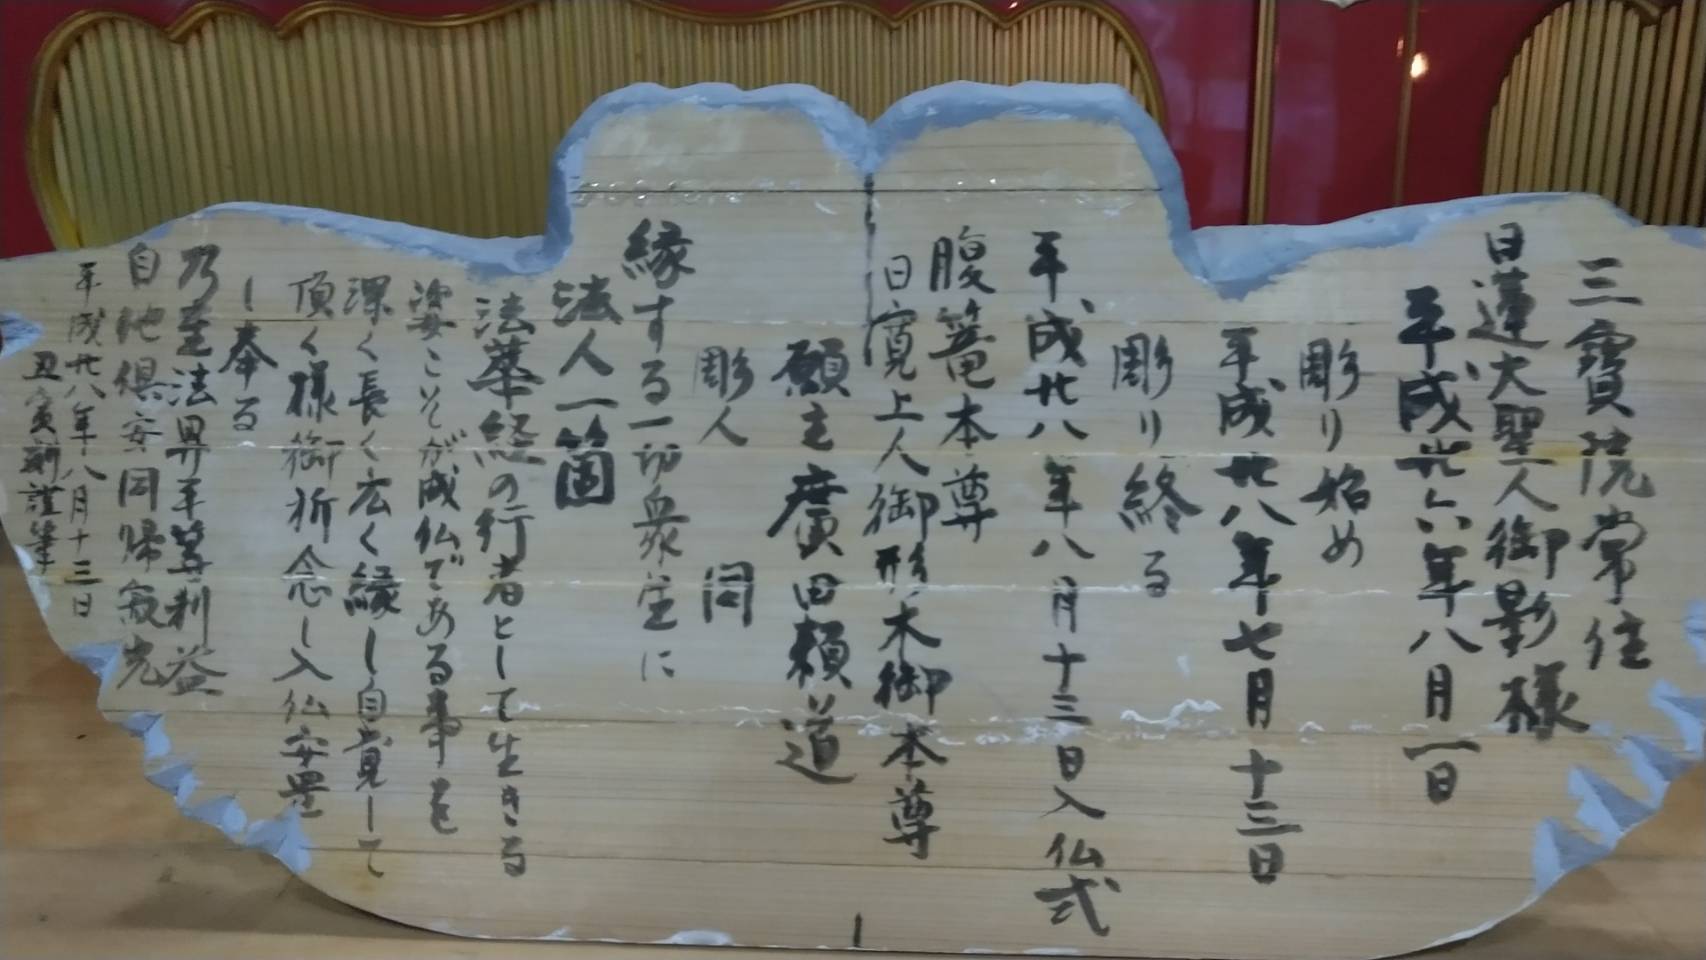 三寳院常住
日蓮大聖人御影様
平成廿六年八月一日
彫り始め
平成廿八年七月十三日
彫り終る
平成廿八年八月十三日入仏式
腹篭本尊
日寛上人御形木御本尊
願主 廣田頼道
彫人 同
縁する一切衆生に
法人一箇
法華経の行者として生きる
姿こそが成仏である事を
深く長く広く縁し自覚して
頂く様御祈念し入仏安置
し奉る
乃至法界平等利益
自他倶安同帰寂光
平成廿八年八月十三日
丑寅 謹筆